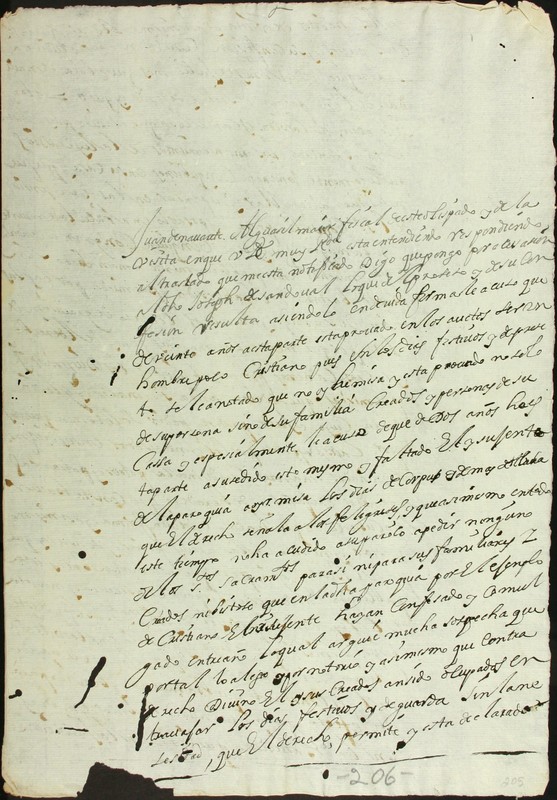 Juan de navarrete Alguasil maior fiscal de este obispado y de la
visita en que V. S. muy Rda esta entendiendo respondiendo
al traslado que me esta notificado Digo que pongo por acusasion
a dho Joseph de sandoval lo que del proseso y de su con
fesion resulta asiendolo en devida forma le acuso que
de veinte años a esta parte esta provado en los auctos ser un
hombre poco Cristiano pues en los dias festivos y de prese
to se le a notado que no oye misa y esta provado no solo
de su persona sino de su familia Creados y personas de su
Cassa y espesialmente le acuso de que de Dos años ha es
ta parte a susedido esto mesmo y faltado El y su gente
de la paroquia a oyr misa los dias de Corpus y demas
que El derecho señala a los feligreses y que asimismo en todo
este tiempo no ha acudido a su parocho a pedir ninguno
de los Stos sacramtos para si ni para sus familiares y
Criados ni bistose que en la dha paroquia por El esemplo
de Cristiano El nisugente hayan Confesado y Comul
gado en un año lo qual arguie mucha sospecha que
por tal lo alego y por notorio y asimismo que contra
derecho Divino El y sus Creados an sido ocupados en
trabajar los dias festivos y de guarda sin la nese
sidad, que El derecho, permite y esta declarado
-206-
205